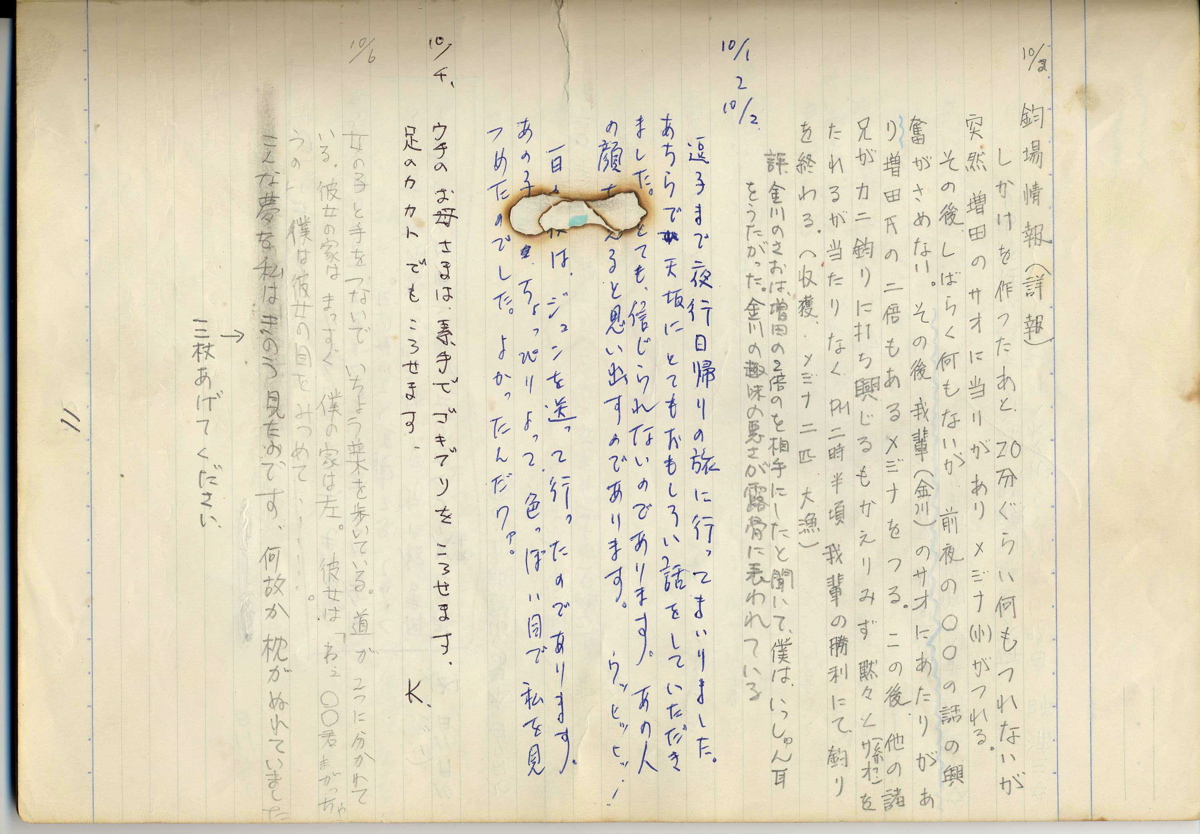 10/2 釣場情報(詳報)
しかけを作ったあと、20分ぐらい何もつれないが
突然増田のサオに当りがあり メジナ(小)がつれる。
その後、しばらく何もないが、前夜の〇〇の話の興
奮がさめない。その後 我輩(金川)のサオにあたりがあ
り増田氏の二倍もあるメジナをつる。この後、他の諸
兄がカニ釣りに打ち興じるもかえりみず 黙々と を
たれるが当たりなく PM二時半頃 我輩の勝利にて釣り
を終わる。(収獲、メジナ二匹 大漁)
評 金川のさおは、増田の2倍のを相手にしたと聞いて、僕は、いっしゅん耳
をうたがった。金川の趣味の悪さが露骨に表われている
10/1 2 10/2
逗子まで夜行日帰りの旅に行ってまいりました。
あちらで 天坂にとてもおもしろい話をしていただき
ました。とても、信じられないのであります。あの人
の顔を ると思い出すのであります。ウッヒッヒ…!
一日 は、ジュンを送って行ったのであります。
あの子 ちょっぴりよって、色っぽい目で 私を見
つめたのでした。よかったんだワァ。
10/4、 ウチのお母さまは、素手でゴキブリを ころせます、
足のカカトでもころせます。 K.
10/6 女の子と手をつないで いちょう並木を歩いている。道が二つに分かれて
いる。彼女の家は まっすぐ 僕の家は左。彼女は「ねェ〇〇君まがっちゃ
うの」 僕は彼女の目をみつめて・・・・・・。
こんな夢を私はきのう見たのです、何故か 枕がぬれていました
→
三枚あげてください
11